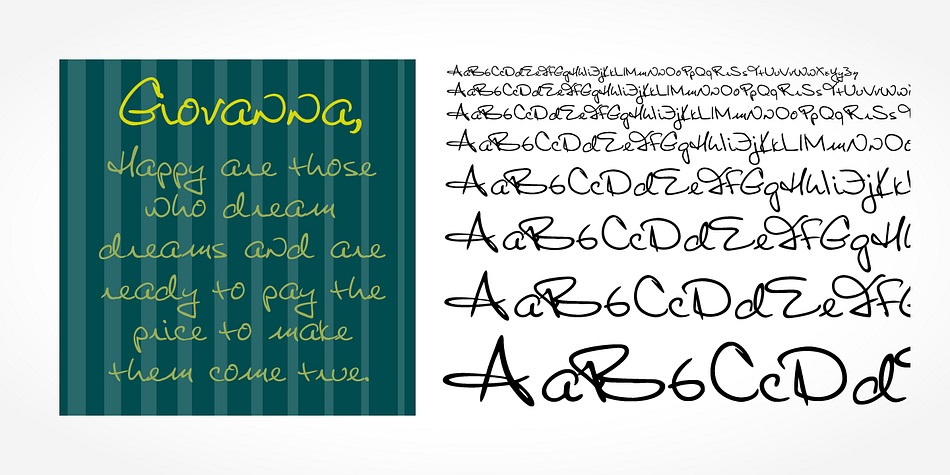 Giovanna,
Happy are those
who dream
dreams and are
ready to pay the
price to make
them come true.
AaBbCcDdEeFfGgHhIiJjKkLlMmNnOoPpQqRrSsTtUuVvWwXxYyZz
AaBbCcDdEeFfGgHhIiJjKkLlMmNnOoPpQqRrSsTtUuVvWw
AaBbCcDdEeFfGgHhIiJjKkLlMmNnOoPpQqRrSs
AaBbCcDdEeFfGgHhIiJjKkLlMmNnOo
AaBbCcDdEeFfGgHhIiJjKk
AaBbCcDdEeFfGgH
AaBbCcDdEeFf
AaBbCcDd